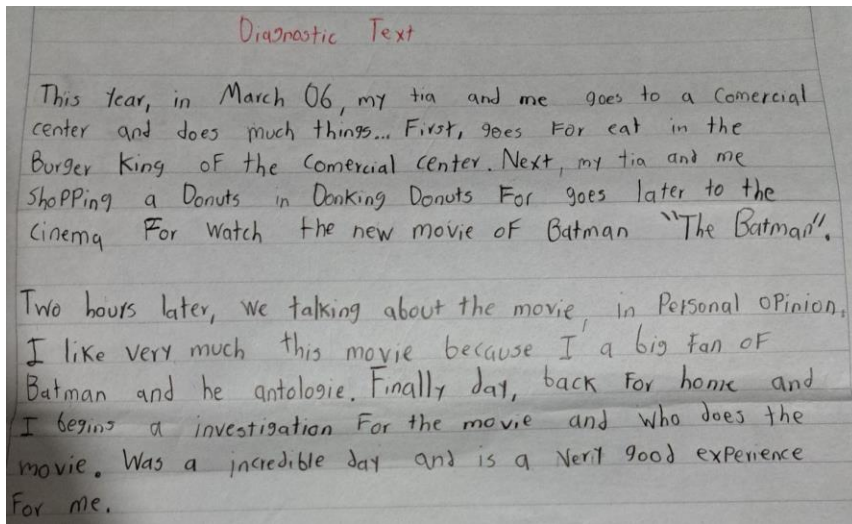 Diagnostic Text
This Year, in March 06, my tia and me goes to a Comercial
center and does much things... First, goes For eat in the
Burger King of the Comercial center. Next, my tia and me
Shopping a Donuts in Donking Donuts For goes later to the
Cinema For Watch the new movie of Batman "The Batman".
Two hours later, We talking about the movie, in Personal opinion,
I like very much this movie because I' a big Fan of
Batman and he antologie. Finally day, back For home and
I begins a investigation For the movie and Who does the
movie. Was a incredible day and is a Very good experience
For me.